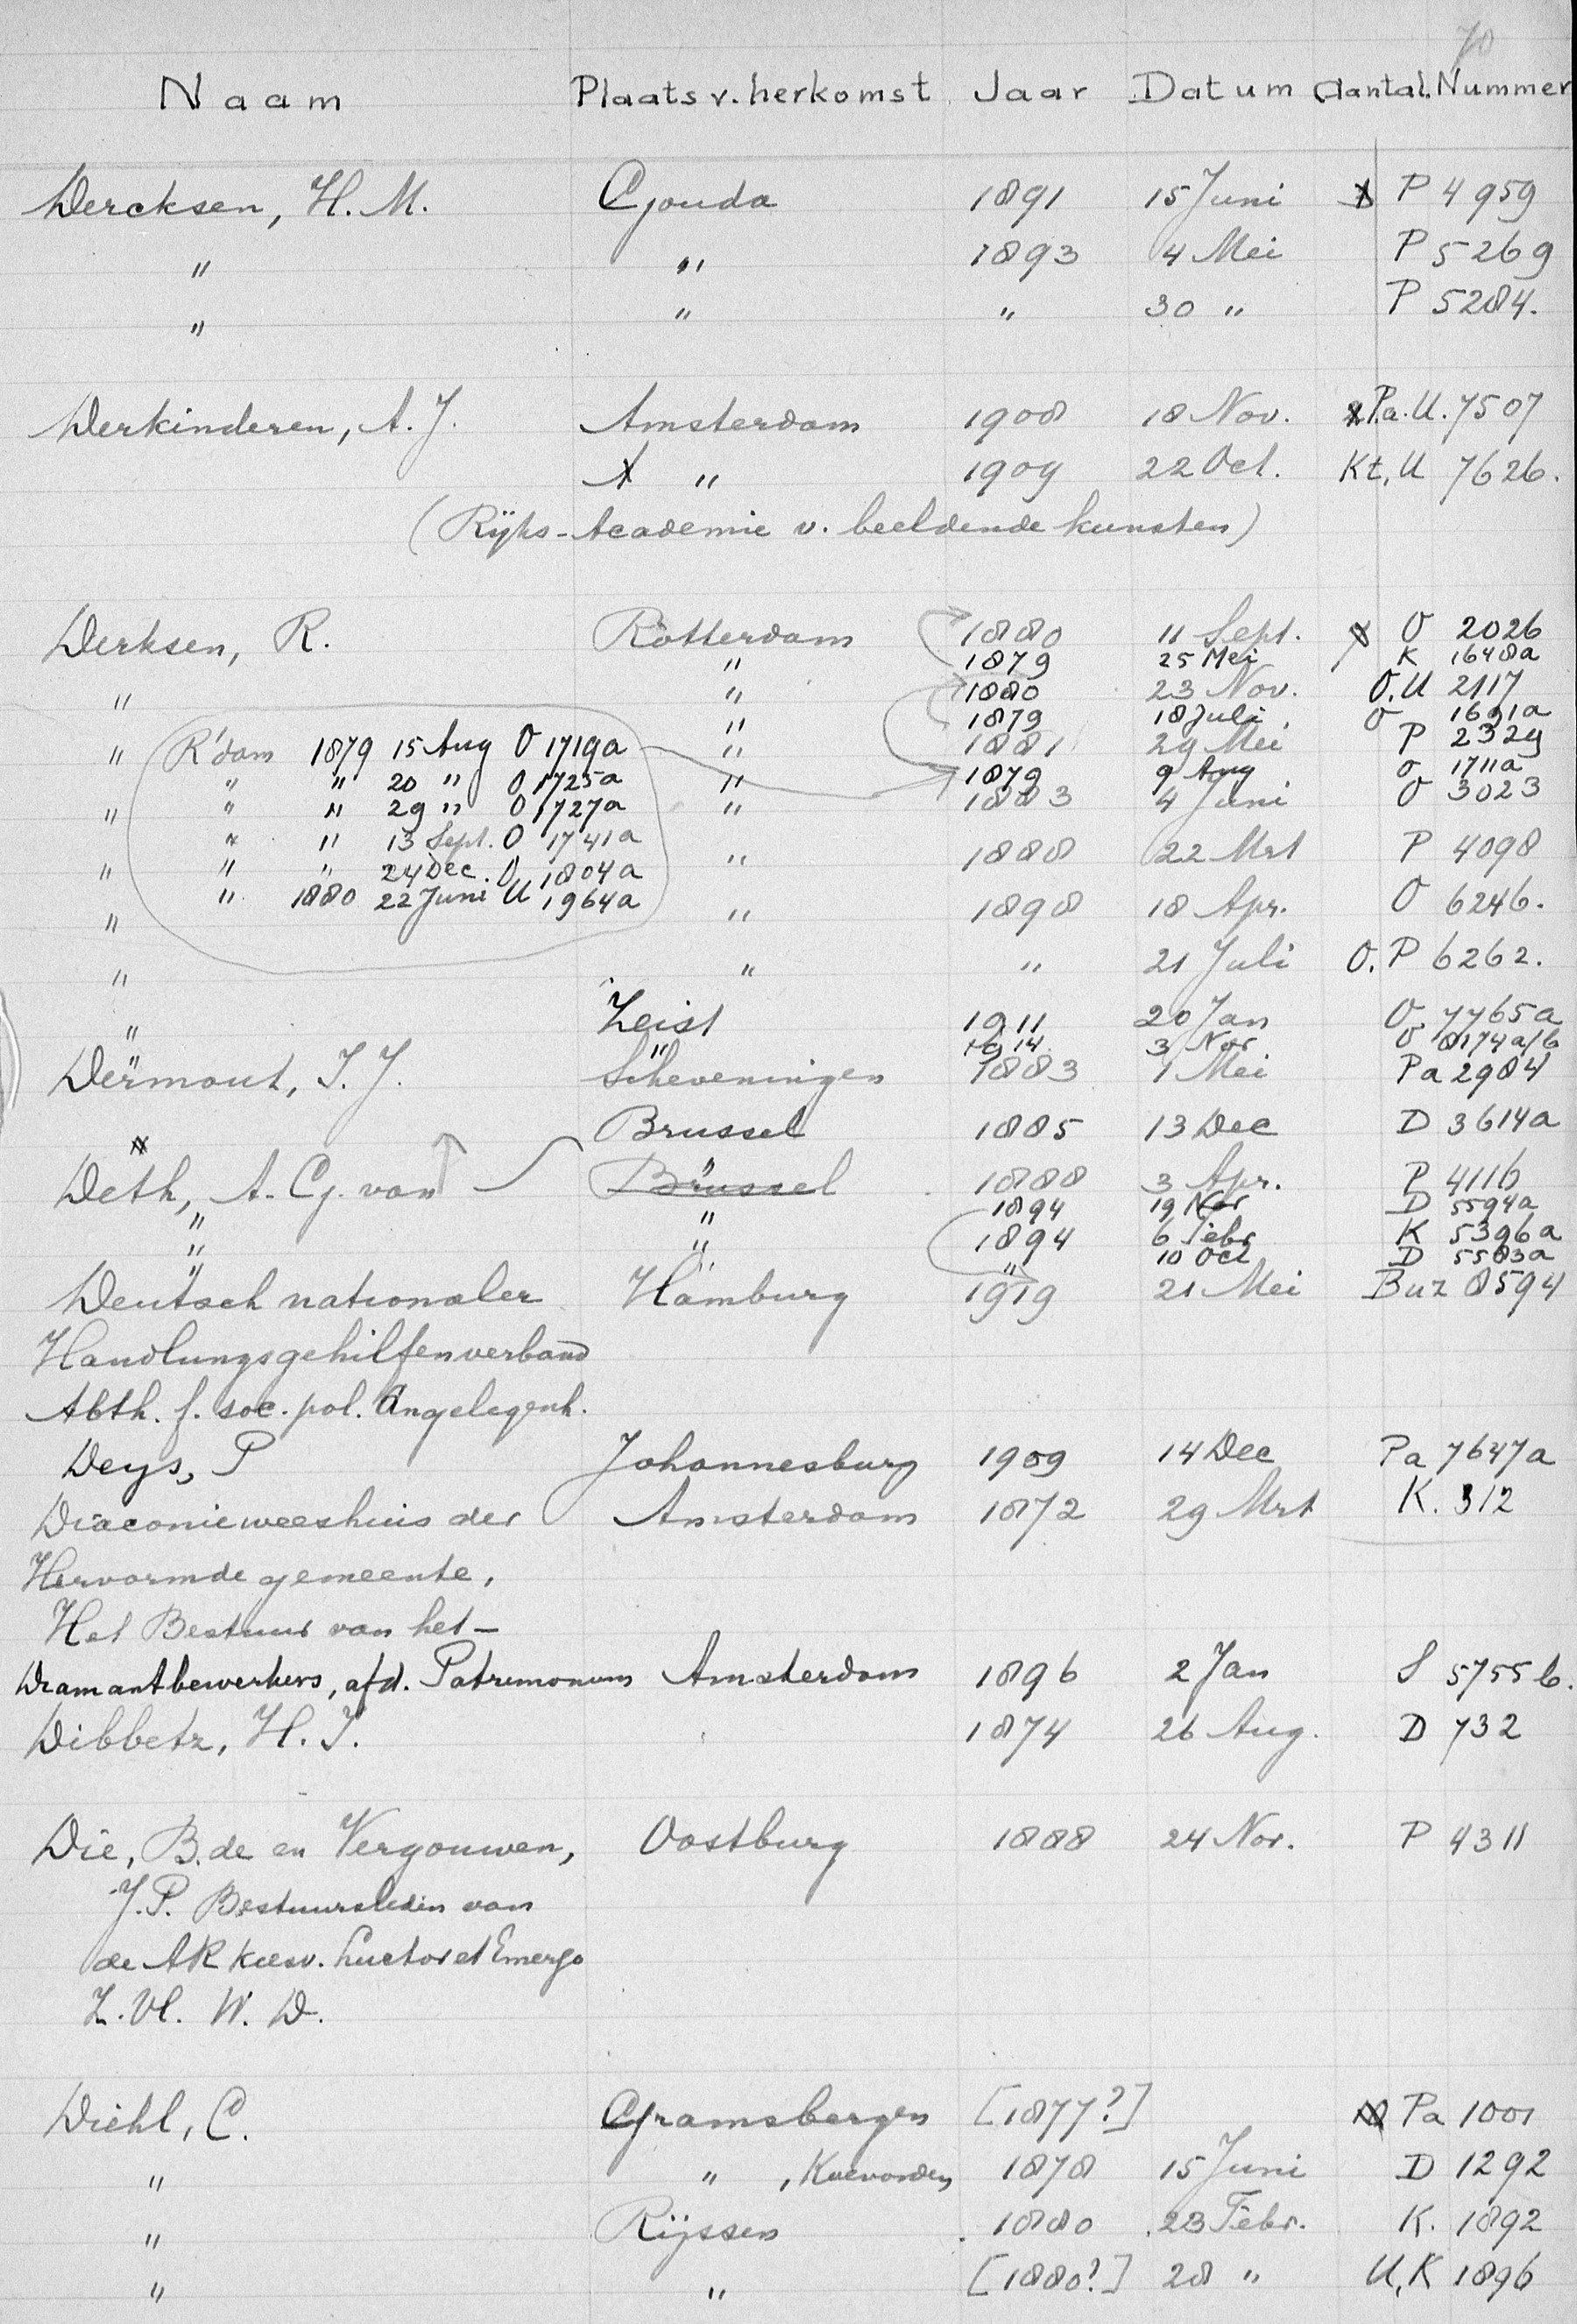 70
Naam Plaats v. herkomst Jaar Datum Aantal. Nummer
Dercksen, H. M. Gouda 1891 15 Juni P 4959
" " 1893 4 Mei P 5269
" " " 30 " P 5284.
Derkinderen, A. J. Amsterdam 1908 18 Nov. Pa. U. 7507
" 1909 22 Oct. Kt, U 7626.
(Rijks-Academie v. beeldende kunsten)
Derksen, R. Rotterdam 1880 11 Sept. O 2026
" 1879 25 Mei K 1648a
" " 1880 23 Nov. O. U 2117
" 1879 18 Juli O 1691a
" " 1881 29 Mei P 2329
" 1879 9 Aug O 1711a
" " 1883 4 Juni O 3023
" " 1888 22 Mrt P 4098
" " 1898 18 Apr. O 6246.
" " " 21 Juli O. P 6262.
R'dam 1879 15 Aug O 1719a
" " 20 " O 1725a
" " 29 " O 1727a
" " 13 Sept. O 1741a
" " 24 Dec. O 1804a
" 1880 22 Juni U 1964a
" Zeist 1911 20 Jan O 7765a
" " 1914 3 Nov O 8174a/b
Dermout, I. J. Scheveningen 1883 1 Mei Pa 2984
Brussel 1885 13 Dec D 3614a
Deth, A. G. van Brussel " 1888 3 Apr. P 4116
" " 1894 19 Nov D 5594a
" " 1894 6 Febr K 5396a
" " " 10 Oct D 5583a
Deutsch nationaler Hamburg 1919 21 Mei Buz 8594
Handlungsgehilfenverband
Abth. f. soc. pol. Angelegenh.
Deys, P Johannesburg 1909 14 Dec Pa 7647a
Diaconieweeshuis der Amsterdam 1872 29 Mrt K. 312
Hervormde gemeente,
Het Bestuur van het –
Diamantbewerkers, afd. Patrimonium Amsterdam 1896 2 Jan S 5755 b.
Dibbetz, H. J. 1874 26 Aug. D 732
Die, B. de en Vergouwen, Oostburg 1888 24 Nov. P 4311
J. P. Bestuursleden van
de AR kiesv. Luctor et Emergo
Z. Vl. W. D.
Diehl, C. Gramsbergen [1877?] Pa 1001
" " , Koevorden 1878 15 Juni D 1292
" Rijssen 1880 23 Febr. K. 1892
" " [1880?] 28 " U, K 1896